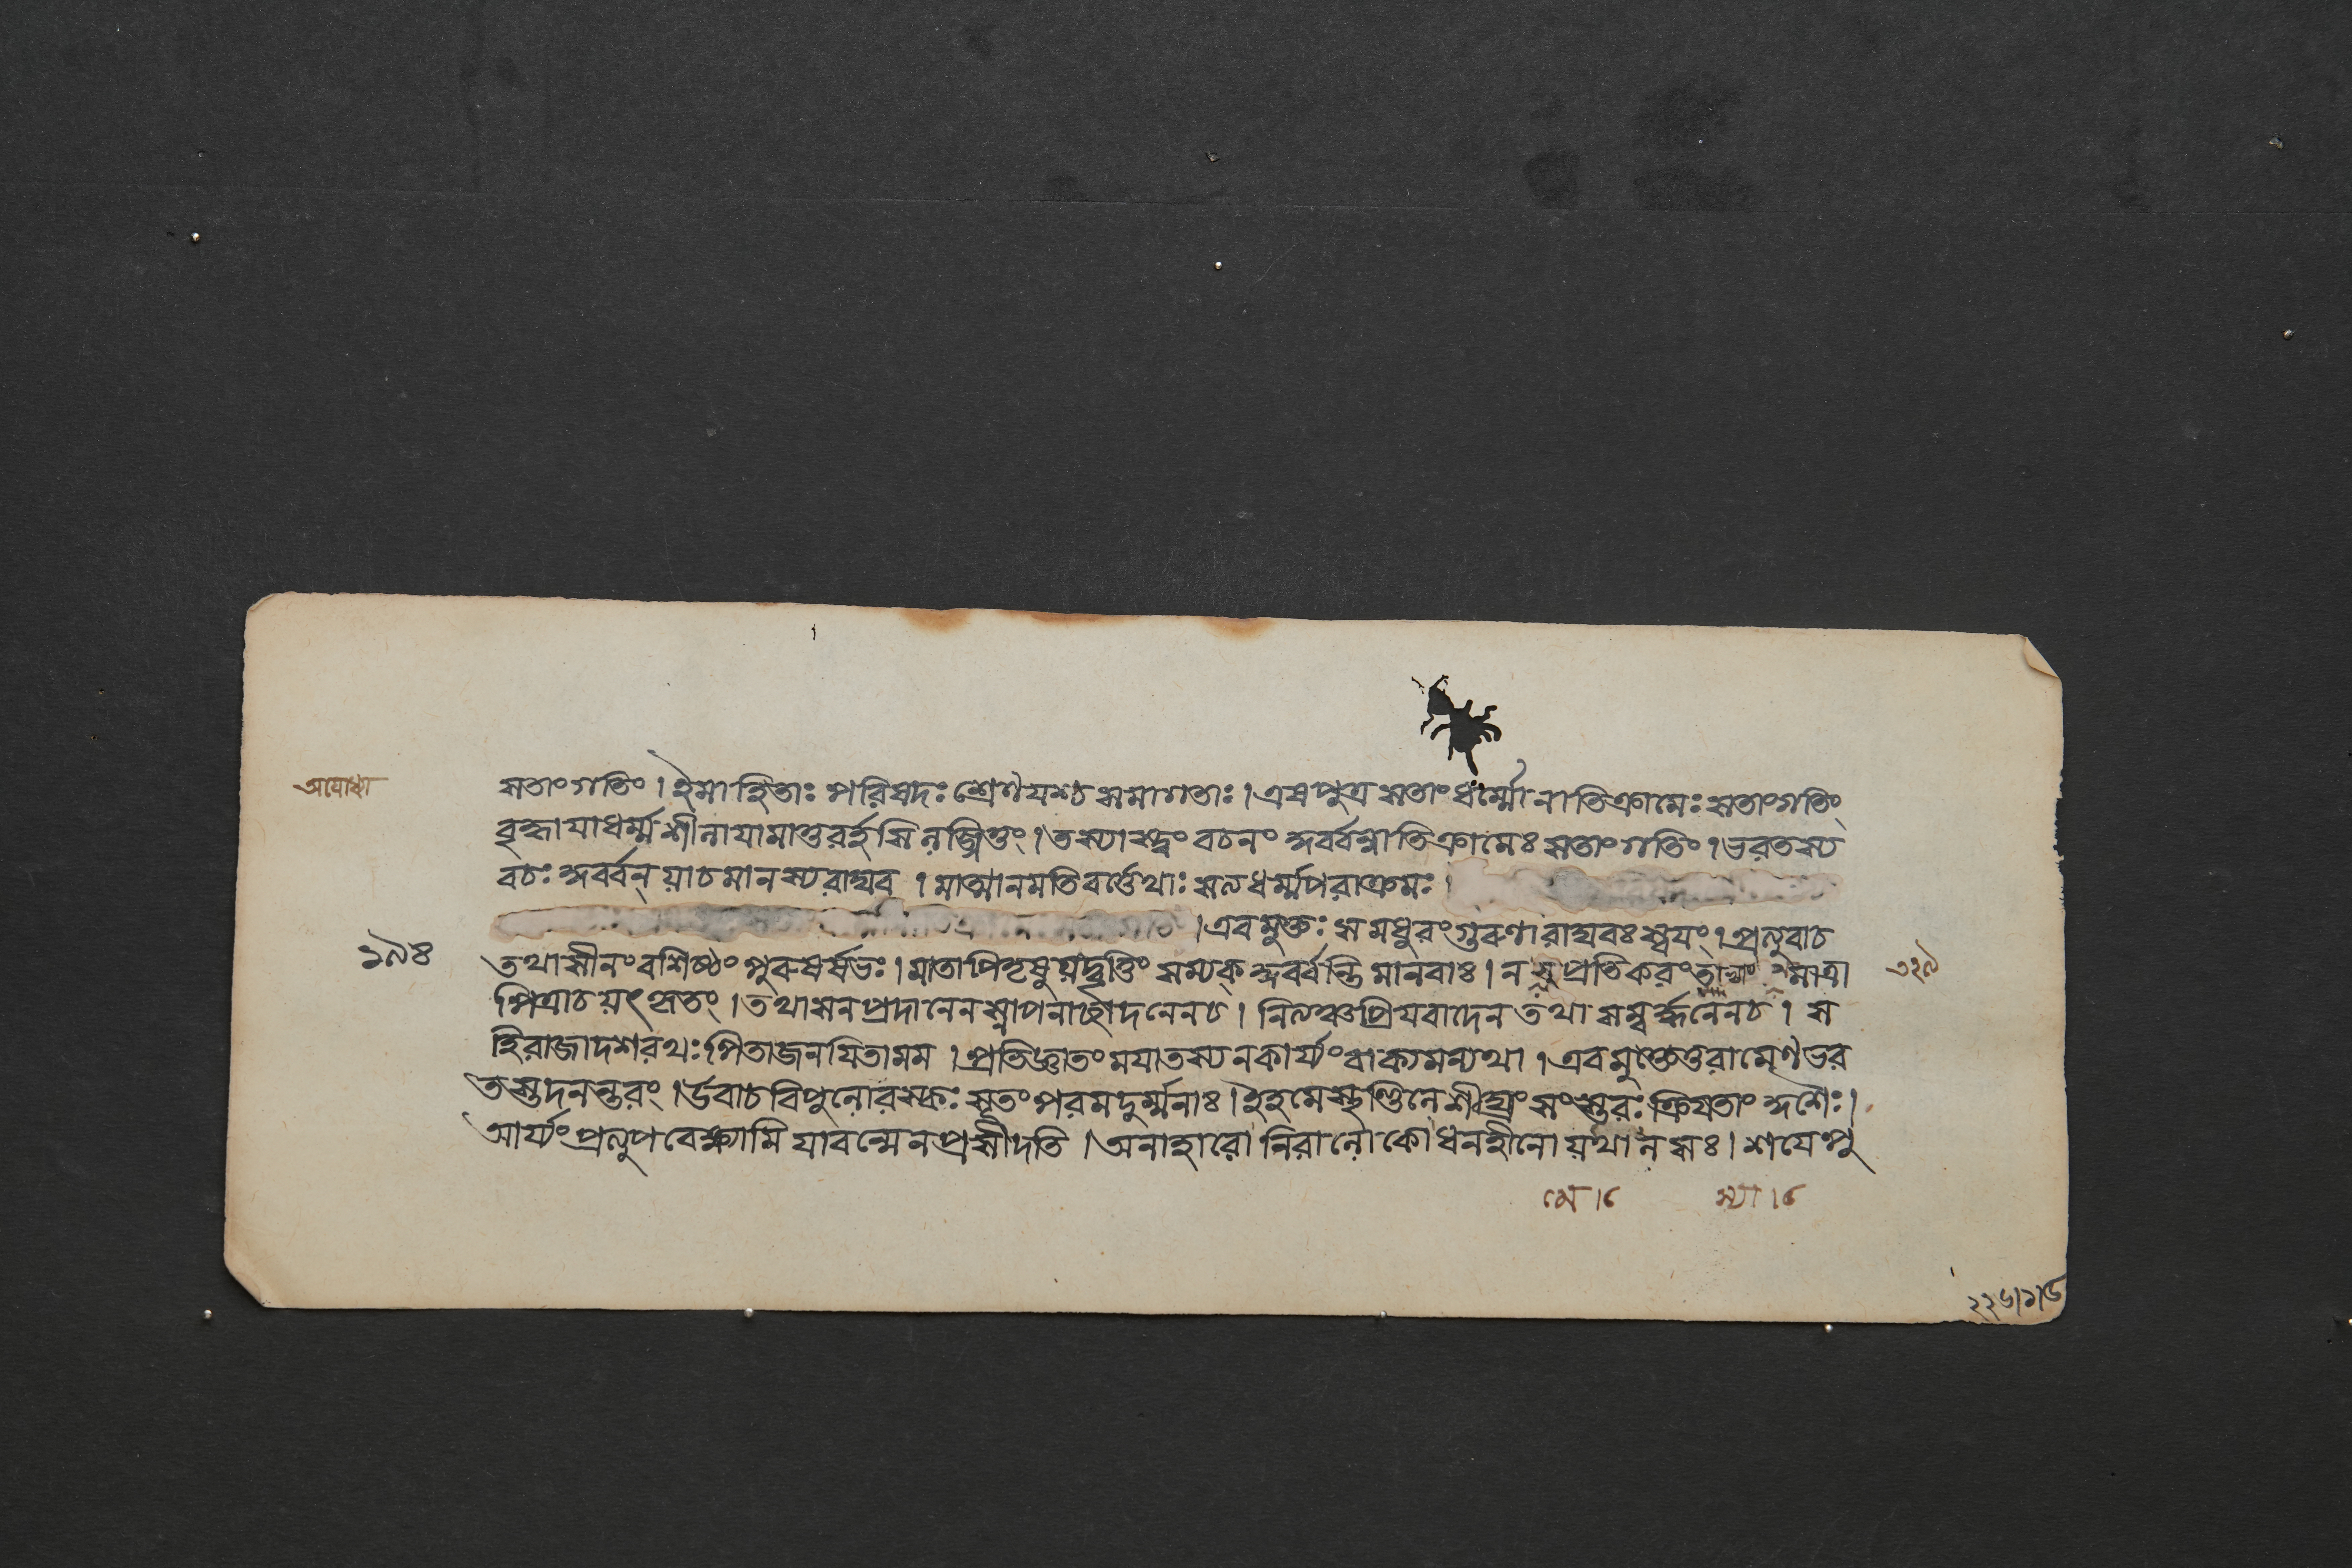 অযোধ্যা
সতাংগতিং। ইমাহিতাঃ পরিষদঃ শ্রেণযশ্চ সমাগতাঃ। এষপুত্র সতাংধর্ম্মো নাতিক্রামেঃ সতাংগতিং
বৃদ্ধাযাধর্ম্মশীনাযামাতুরর্হসি নবর্ত্তিতুং। তস্যাস্ত্বং বচনং কুর্ব্বন্নাতিক্রামেঃ সতাংগতিং। ভরতস্য
বচঃ কুর্ব্বন্ য়াচমানস্যরাঘব। মাত্মানমতিবর্ত্তেথাঃ সত্যধর্ম্মপরাক্রমঃ।
। এবমুক্তঃ সমধুরংগুরুণারাঘবঃ স্বযং। প্রত্যুবাচ
১৯৪
তথাসীনংবশিষ্ঠং পুরুষর্ষভঃ। মাতাপিতৃষুয়দ্বৃত্তিং সম্যক্ কুর্ব্বন্তি মানবাঃ। ন সুপ্রতিকরং মাত্রা
৩২৯
পিত্রাচয়ৎকৃতং। তথাসনপ্রদানেন স্নাপনাচ্ছাদনেনচ। নিত্যঞ্চপ্রিযবাদেন তথা সম্বর্দ্ধনেনচ। স
হিরাজাদশরথঃ পিতাজনযিতামম। প্রতিজ্ঞাতংমযাতস্যনকার্য্যংবাক্যমন্যথা। এবমুক্তেতুরামেণভর
তস্তদনন্তরং। উবাচবিপুলোরস্কঃ সূতং পরমদুর্ম্মনাঃ। ইহমেস্থণ্ডিলেশীঘ্রং সংস্তরঃ ক্রিযতাং কুশৈঃ।
আর্য্যং প্রত্যুপবেক্ষ্যামি যাবন্মেনপ্রসীদতি। অনাহারো নিরালোকো ধনহীনো য়থা নরঃ। শযেপু
২২৬।১।৬